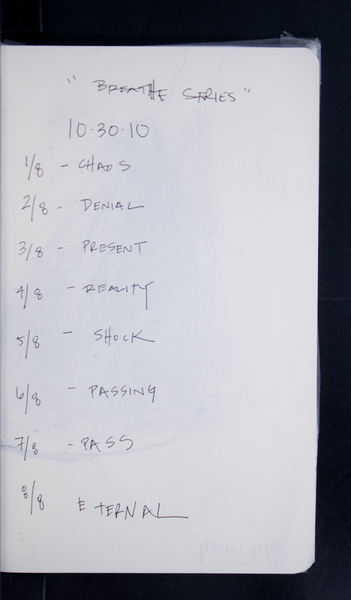 "BREATHE SERIES"
10.30.10
1/8 - CHAOS
2/8 - DENIAL
3/8 - PRESENT
4/8 - REALITY
5/8 - SHOCK
6/8 - PASSING
7/8 - PASS
8/8 ETERNAL